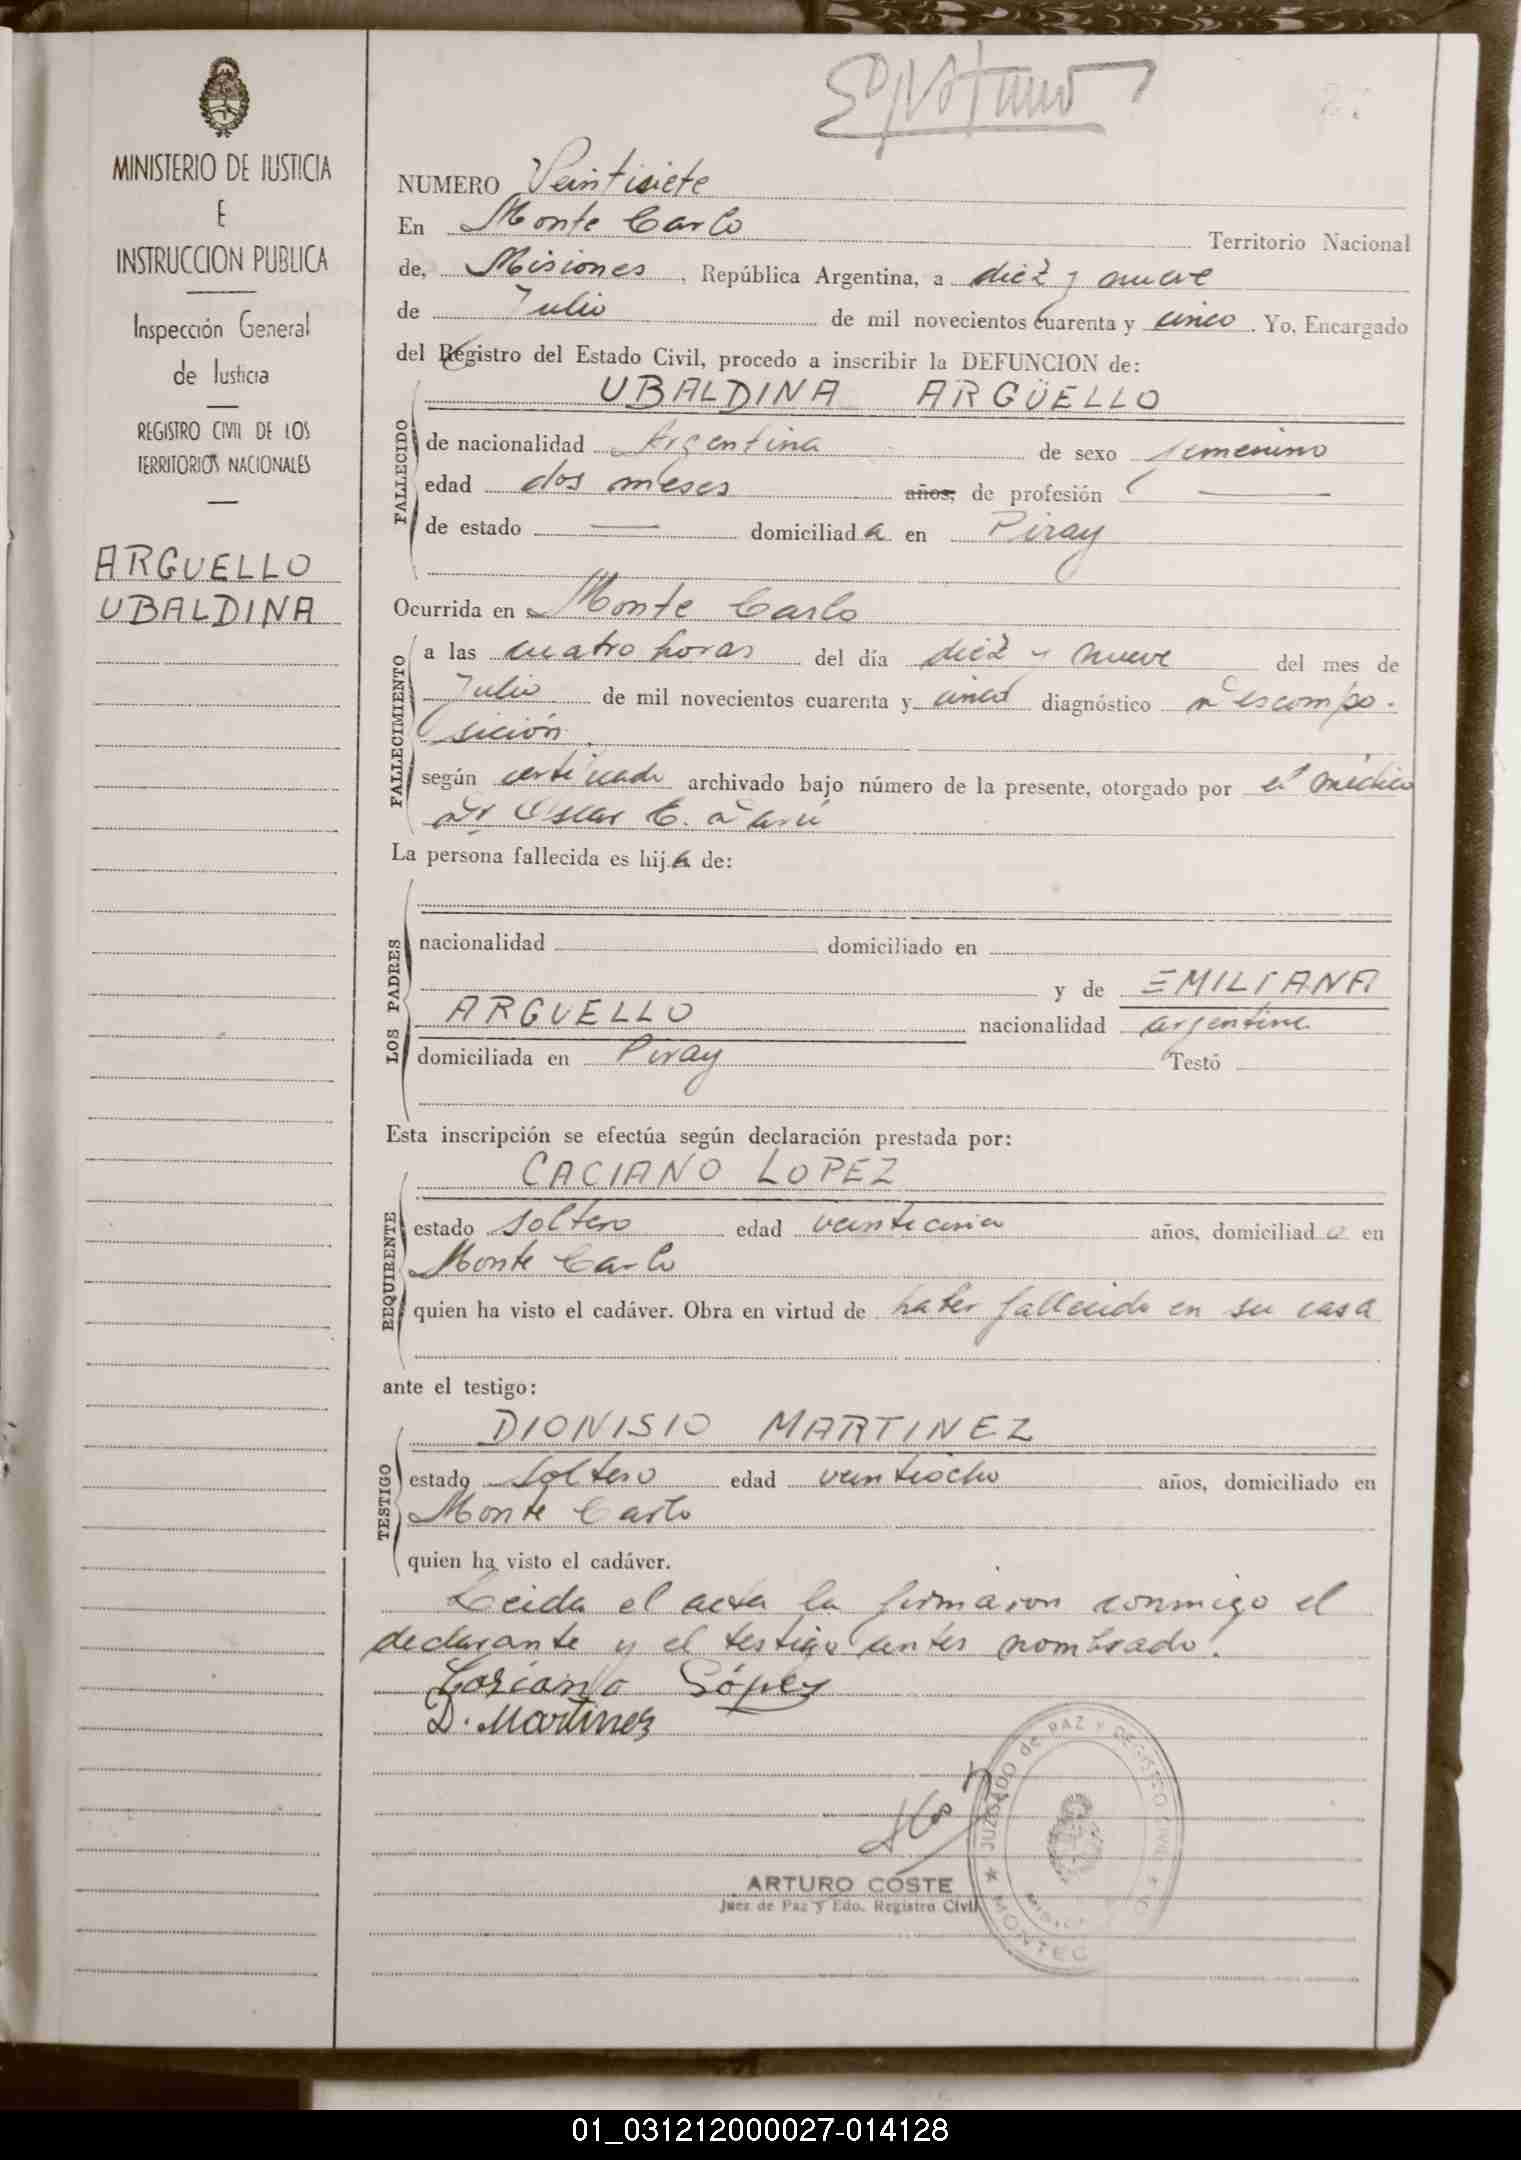 MINISTERIO DE JUSTICIA
E
INSTRUCCION PUBLICA
Inspección General
de Justicia
REGISTRO CIVIL DE LOS
TERRITORIOS NACIONALES
ARGUELLO
UBALDINA
NUMERO Veintisiete
En Monte Carlo Territorio Nacional
de, Misiones, República Argentina, a diez y nueve
de Julio de mil novecientos cuarenta y cinco. Yo, Encargado
del Registro del Estado Civil, procedo a inscribir la DEFUNCION de:
UBALDINA ARGÜELLO
FALLECIDO
de nacionalidad Argentina de sexo femenino
edad dos meses años, de profesión —
de estado — domiciliada en Piray
Ocurrida en Monte Carlo
FALLECIMIENTO
a las cuatro horas del día diez y nueve del mes de
Julio de mil novecientos cuarenta y cinco diagnóstico Descompo-
sición.
según certificado archivado bajo número de la presente, otorgado por el médico
Dr Oscar C. Darú
La persona fallecida es hija de:
LOS PADRES
nacionalidad domiciliado en
y de EMILIANA
ARGUELLO nacionalidad argentina
domiciliada en Piray Testó
Esta inscripción se efectúa según declaración prestada por:
CACIANO LOPEZ
REQUIRENTE
estado soltero edad veinticinco años, domiciliado en
Monte Carlo
quien ha visto el cadáver. Obra en virtud de haber fallecido en su casa
ante el testigo:
DIONISIO MARTINEZ
TESTIGO
estado soltero edad veintiocho años, domiciliado en
Monte Carlo
quien ha visto el cadáver.
Leida el acta la firmaron conmigo el
declarante y el testigo antes nombrado.
López
D. Martinez
ARTURO COSTE
Juez de Paz y Edo. Registro Civil
JUZGADO de PAZ Y REGISTRO CIVIL
MONTEC
01_031212000027-014128